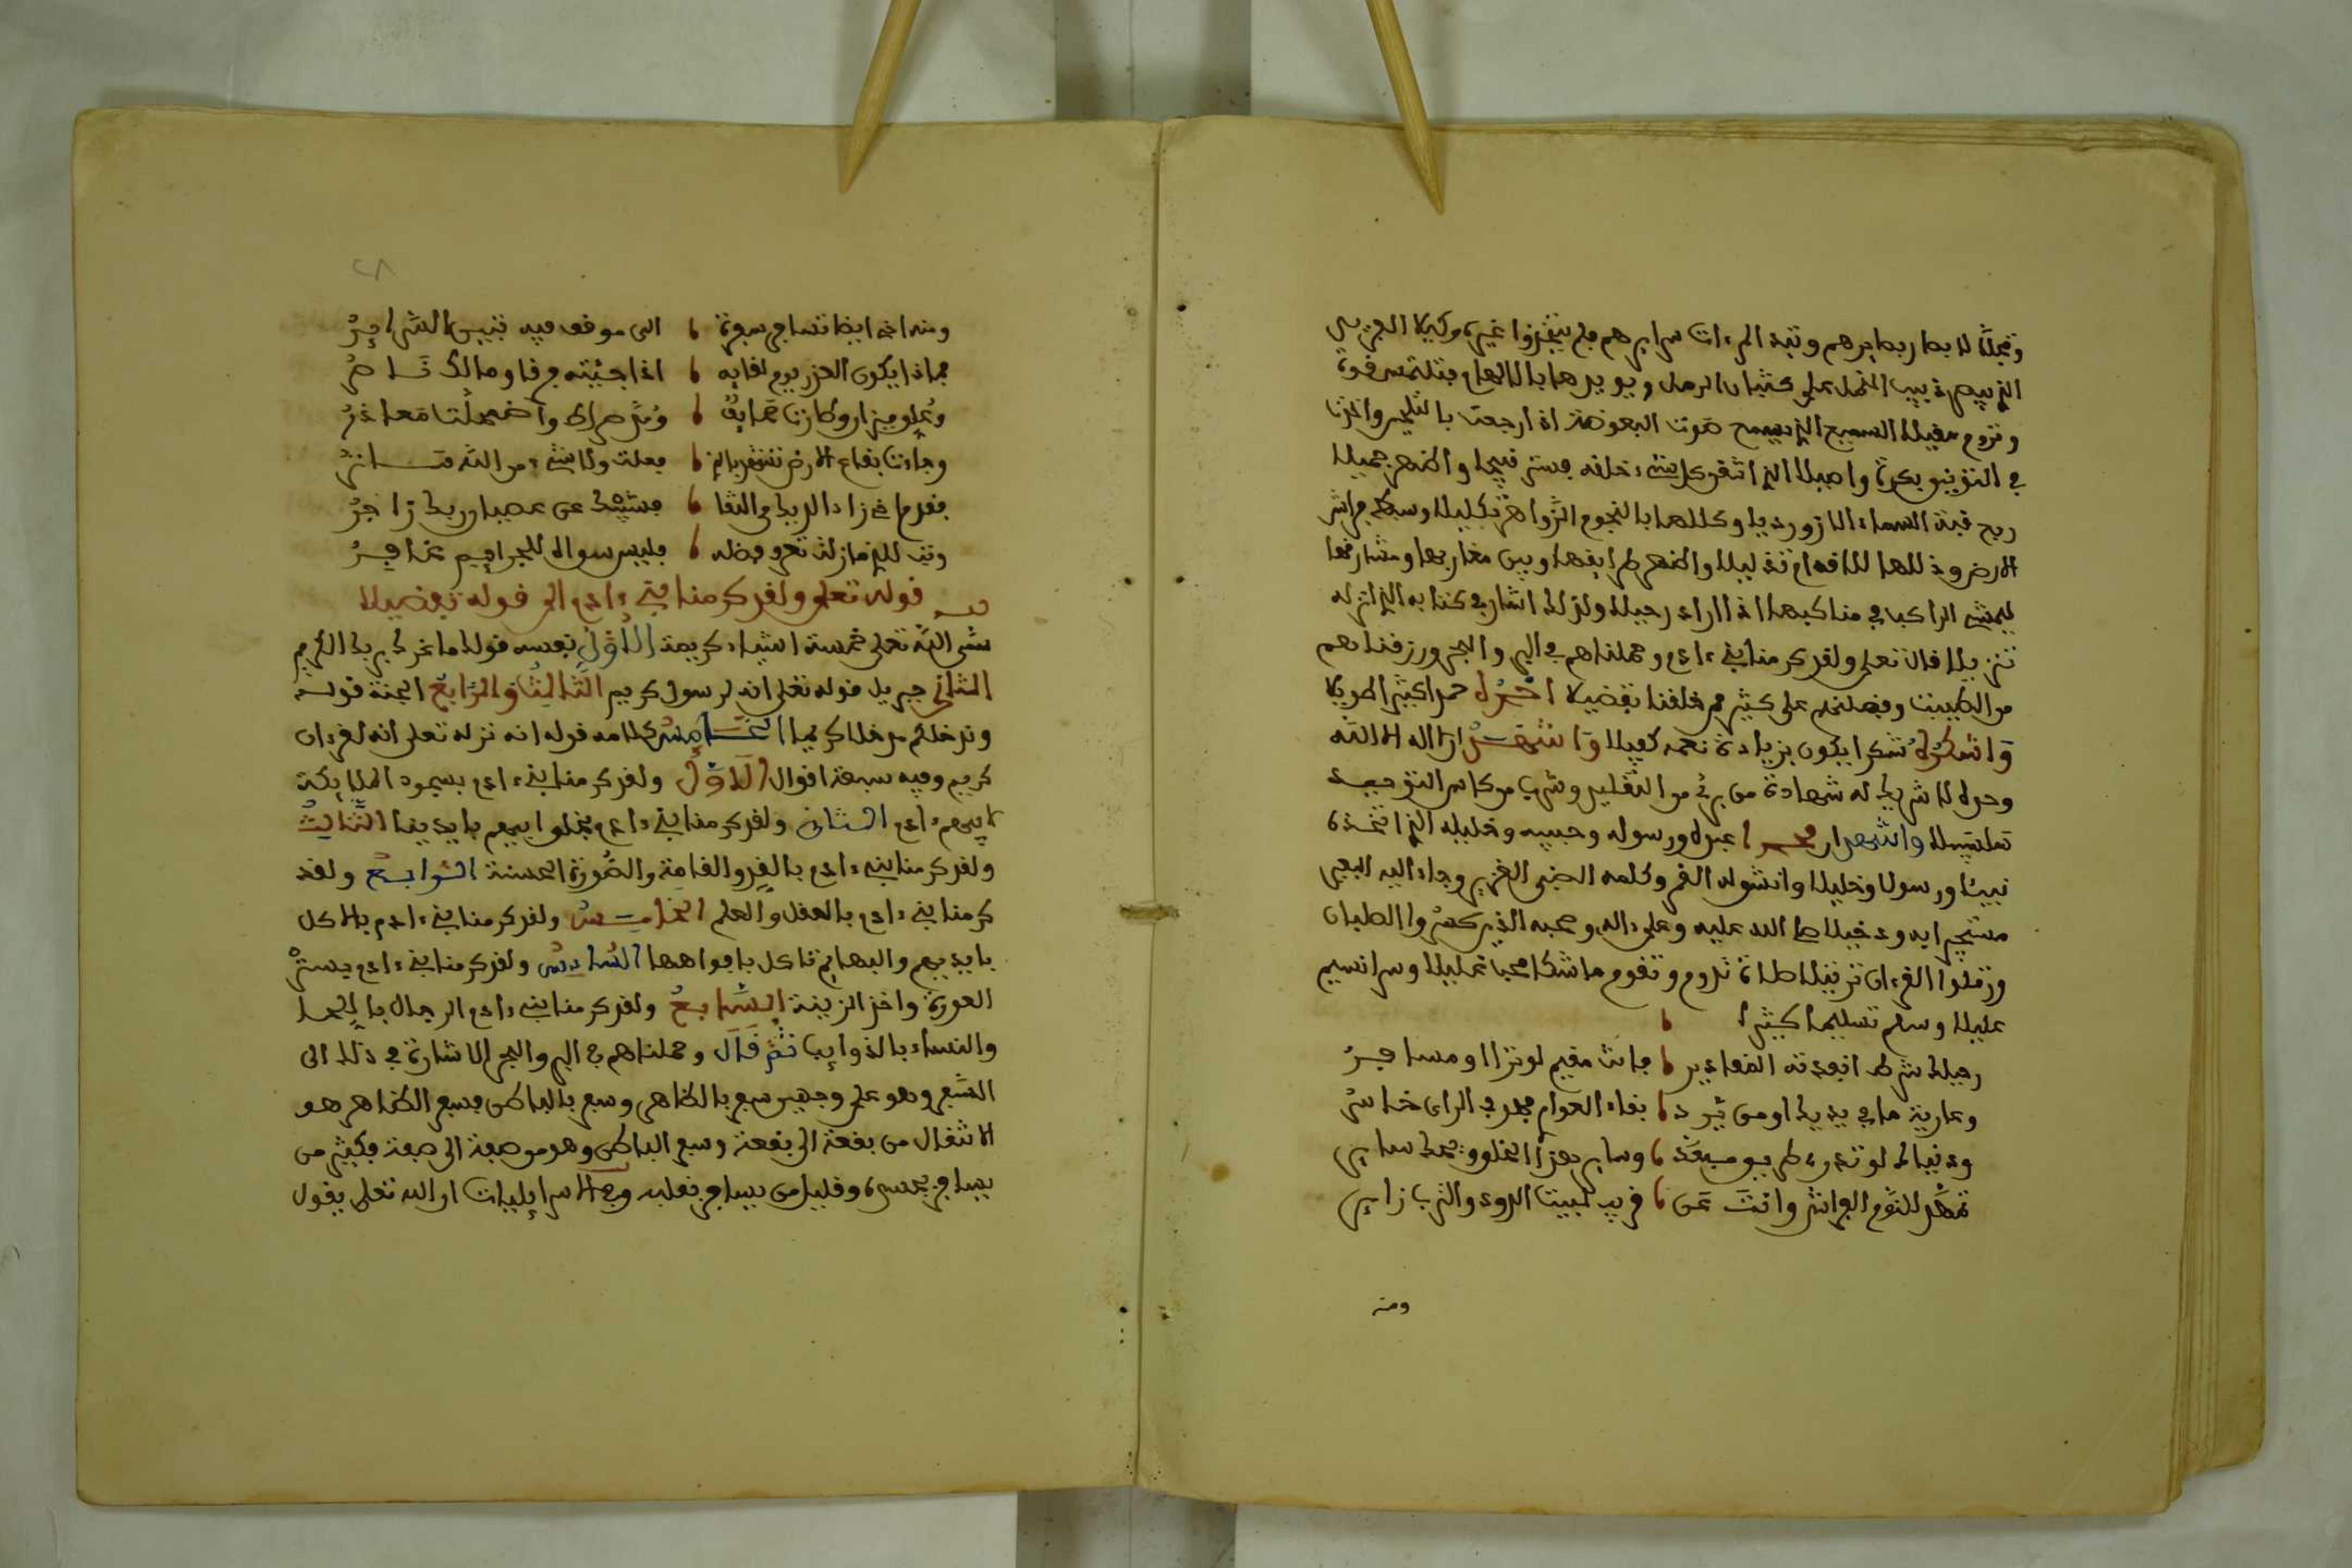 وتجلّا لا بصار بصايرهم وتبد المرءات سرايرهم فلم يتخذوا غيره وكيلا العزيز
الذ يبصر دبيب النمل على كثبان الرمل ويويدها بالالهام فتلتمس قوة
وتروم مقيلا السميع الذ يسمع صوت البعوضة اذا رجعت بالتلحين واخذت
في التزنين بكرة واصيلا الذ اتقن كل شيء خلقه فستر قبيحا واظهر جميلا
ربع قبة السماء اللازوردية وكللها بالنجوم الزواهر تكليلا وبسط فراش
الارض وذللها للاقدام تذليلا واظهر طرايقها وبين مغاربها ومشارقها
ليمشي الراكب في مناكبها اذا اراد رحيلا ولذلك اشار في كتابه الذ انزله
تنزيلا فقال تعلى ولقد كرمنا بني ءادم وحملناهم في البر والبحر ورزقناهم
من الطيبت وفضلنهم على كثير ممن خلقنا تفضيلا احمده حمدا كثيرا طويلا
واشكره شكرا يكون بزيادة نعمه كفيلا واشهد ان لا اله الا الله
وحده لا شريك له شهادة من برئ من التقليد وشرب من كاس التوحيد
سلسبيلا واشهد ان محمدا عبده ورسوله وحبيبه وخليله الذ اتخذه
نبيا ورسولا وخليلا وانشق له القمر وكلمه الضبي الغرير وجاء اليه البعير
مستجيرا به ودخيلا صلى الله عليه وعلى ءاله وصحبه الذين كسروا الصلبان
ورتلوا القرءان ترتيلا صلاة تدوم وتقوم ما شكا محبا غليلا وسرا نسيم
عليلا وسلم تسليما كثيرا
رحيلك شرط انفدته المقادير فانت مقيم لو تراا ومسافر
وعارية ما في يديك ومن يرد بقاء العوام فهو في الراي خاسر
ودنياك لو تدر طريق مبعد وساير هذا الخلق فيها ساير
تمهد للنوم الفراش وانت عن قريب لبيت الدود والترب زاير
ومنه
ومنه اخي ايضا تسافر سفرة الى موقف فيه تبين السراير
فماذا يكون العذر يوم لقايه اذا جئته فردا وما لك ناصر
وعلق ميزان وطارت صحايف ومد صراط واضمحلت معاذر
وجاءت بقاع الارض تشهد بالذ فعلت ولا شيء من الله ساتر
فقدم اخي زاد الرحيل من التقا فشيبك عن عصيان ربك زاجر
وتب للذ ما زلت تعرف فضله فليس سواه للجرايم غافر
قوله تعلى ولقد كرمنا بني ءادم الى قوله تفضيلا
سمى الله تعلى خمسة اشياء كريمة الاول نفسه قوله ما غرك بربك الكريم
الثاني جبريل قوله تعلى انه لرسول كريم الثالث والرابع الجنة قوله
وندخلكم مدخلا كريما الخامس كلامه قوله انه تعلى انه لقرءان
كريم وفيه سبعة اقوال الاول ولقد كرمنا بني ءادم بسجود الملايكة
لابيهم ءادم الثاني ولقد كرمنا بني ءادم بخلق ابيهم بايدينا الثالث
ولقد كرمنا بني ءادم بالقد والقامة والصورة الحسنة الرابع ولقد
كرمنا بني ءادم بالعقل والعلم الخامس ولقد كرمنا بني ءادم بالاكل
بايديهم والبهايم تاكل بافواهها السادس ولقد كرمنا بني ءادم بستر
العورة واخذ الزينة السابع ولقد كرمنا بني ءادم الرجال باللحا
والنساء بالذوايب ثم قال وحملناهم في البر والبحر الاشارة في ذلك الى
السفر وهو على وجهين سفر بالظاهر وسفر بالباطن فسفر الظاهر هو
الانتقال من بقعة الى بقعة وسفر الباطن وهو من صفة الى صفة فكثير من
يسافر بجسمه وقليل من يسافر بقلبه وفي الاسرايليات ان الله تعلى يقول